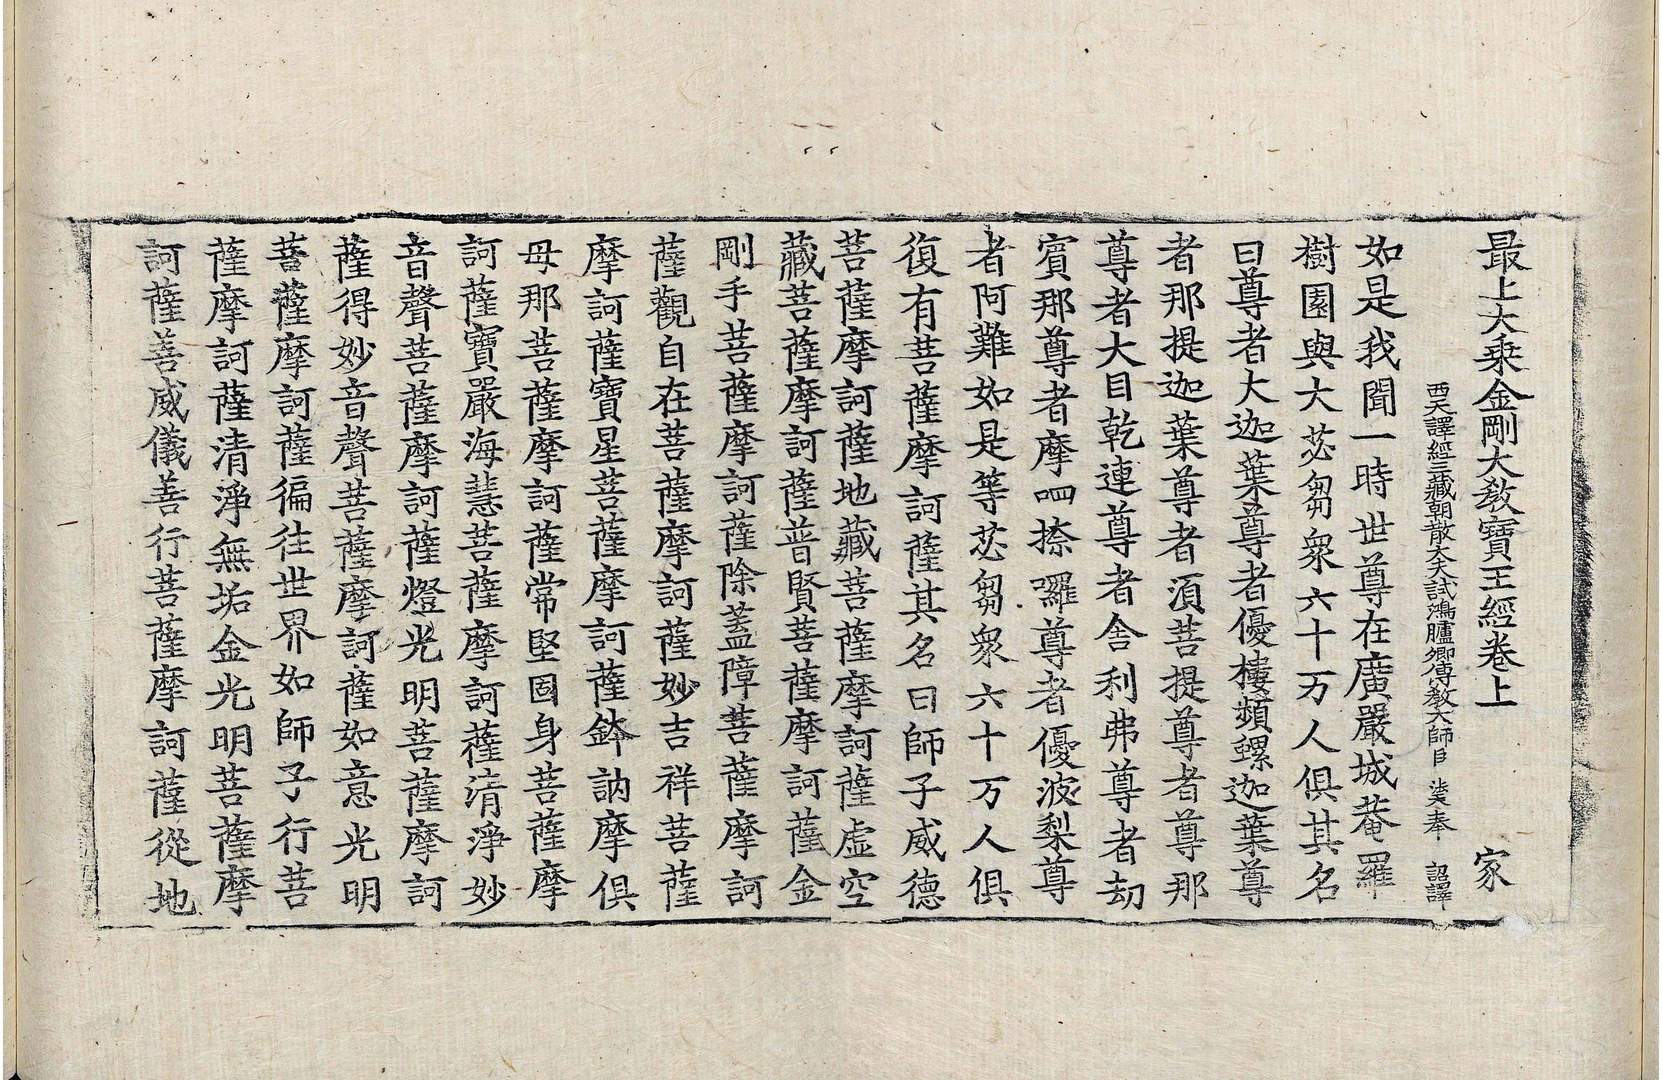 最上大乗金剛大教寶王經卷上　家
西天譯經三藏朝散大夫試鴻臚卿傳教大師臣 法天奉 詔譯
如是我聞一時世尊在廣嚴城菴羅
樹園與大苾芻衆六十万人俱其名
曰尊者大迦葉尊者優樓頻螺迦葉尊
者那提迦葉尊者湏菩提尊者尊那
尊者大目乾連尊者舍利弗尊者劫
賓那尊者摩呬捺囉尊者優波梨尊
者阿難如是等苾芻衆六十万人俱
復有菩薩摩訶薩其名曰師子威德
菩薩摩訶薩地藏菩薩摩訶薩虛空
藏菩薩摩訶薩普賢菩薩摩訶薩金
剛手菩薩摩訶薩除蓋障菩薩摩訶
薩觀自在菩薩摩訶薩妙吉祥菩薩
摩訶薩寶星菩薩摩訶薩鉢訥摩俱
母那菩薩摩訶薩常堅固身菩薩摩
訶薩寶嚴海慧菩薩摩訶薩清淨妙
音聲菩薩摩訶薩燈光明菩薩摩訶
薩得妙音聲菩薩摩訶薩如意光明
菩薩摩訶薩徧往世界如師子行菩
薩摩訶薩清淨無垢金光明菩薩摩
訶薩善威儀善行菩薩摩訶薩從地